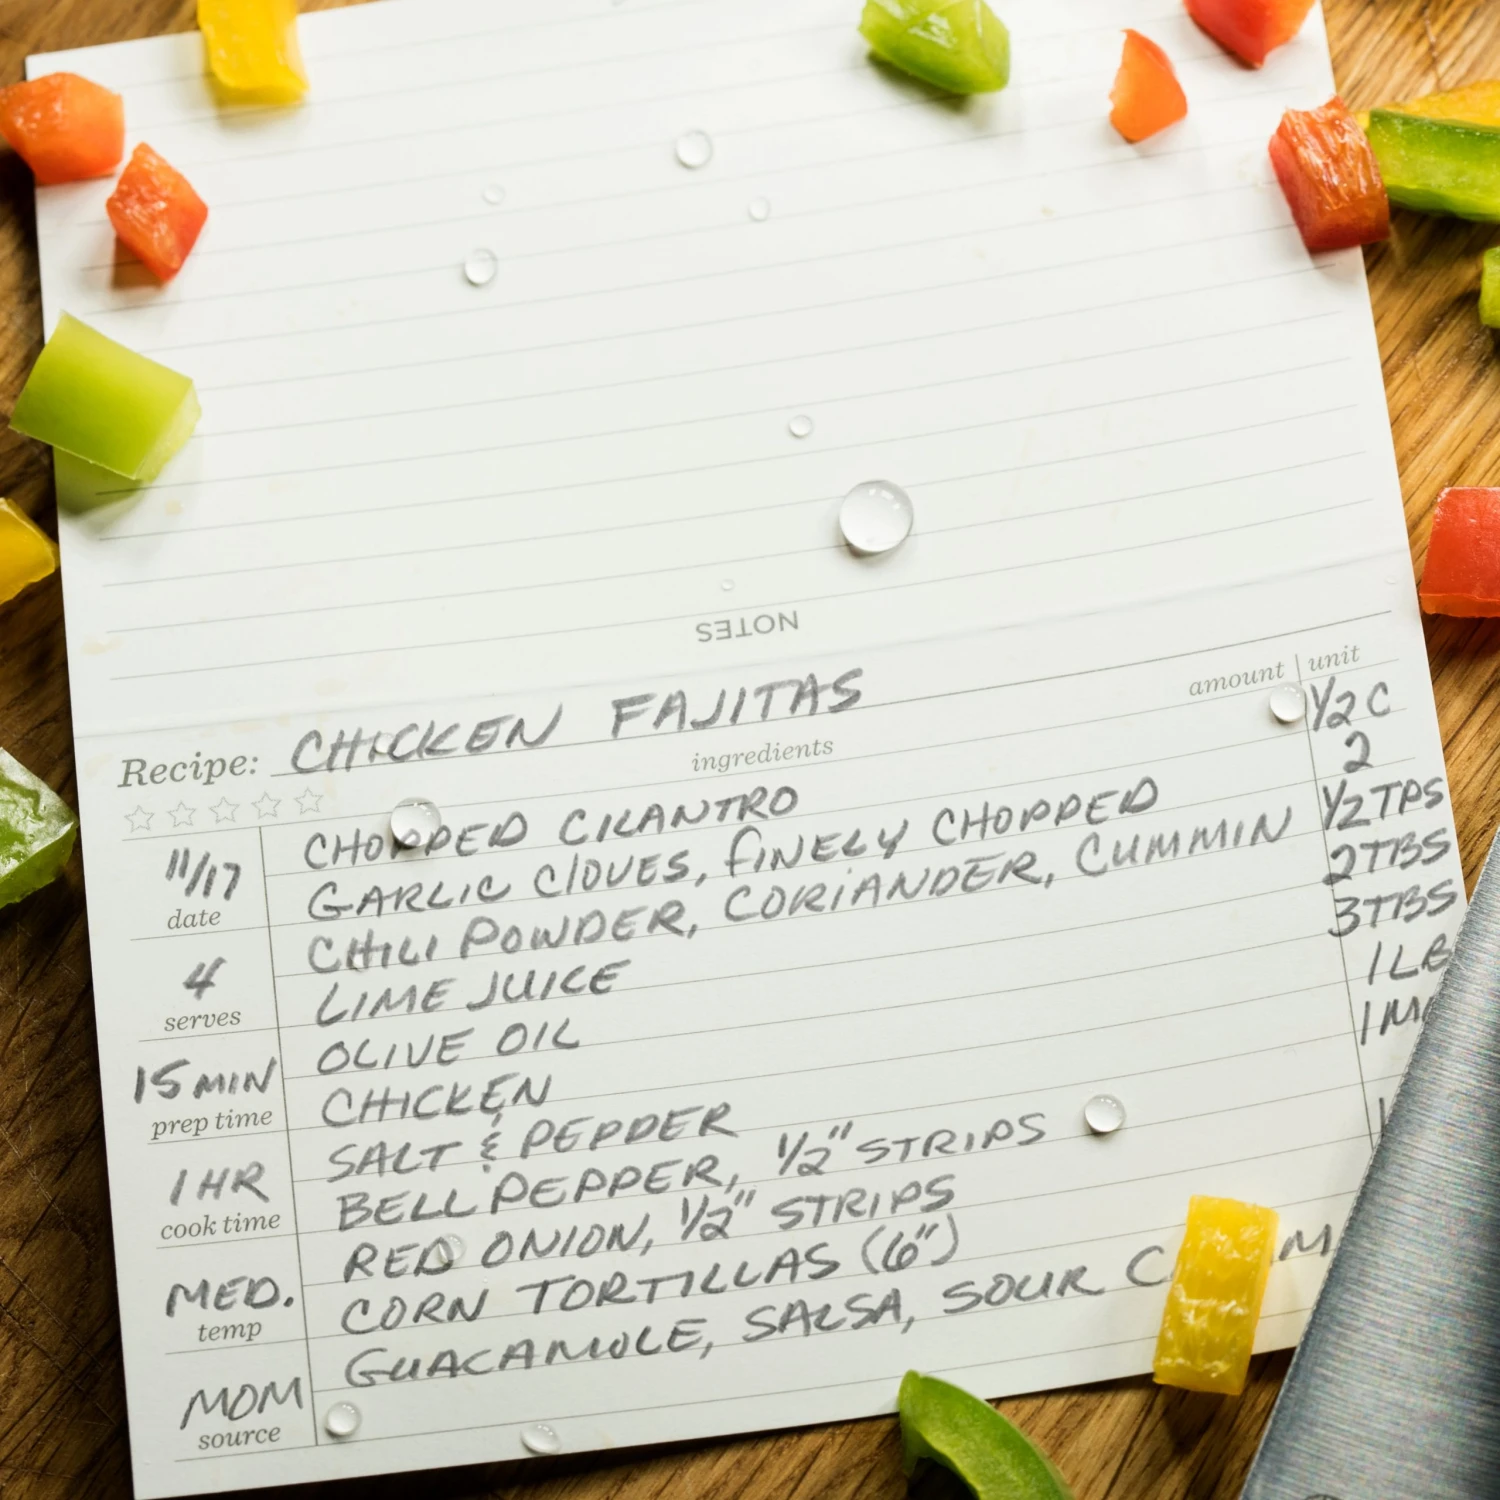 NOTES
Recipe: CHICKEN FAJITAS
ingredients amount | unit
CHOPPED CILANTRO 1/2 C
GARLIC ClOVES, FINELY CHOPPED 2
CHILI POWDER, CORIANDER, CUMMIN 1/2 TPS
LIME JUICE 2 TBS
OLIVE OIL 3 TBS
CHICKEN 1 LB
SALT & PEPPER
BELL PEPPER, 1/2" STRIPS
RED ONION, 1/2" STRIPS
CORN TORTILLAS (6")
GUACAMOLE, SALSA, SOUR
11/17
date
4
serves
15 MIN
prep time
1 HR
cook time
MED.
temp
MOM
source